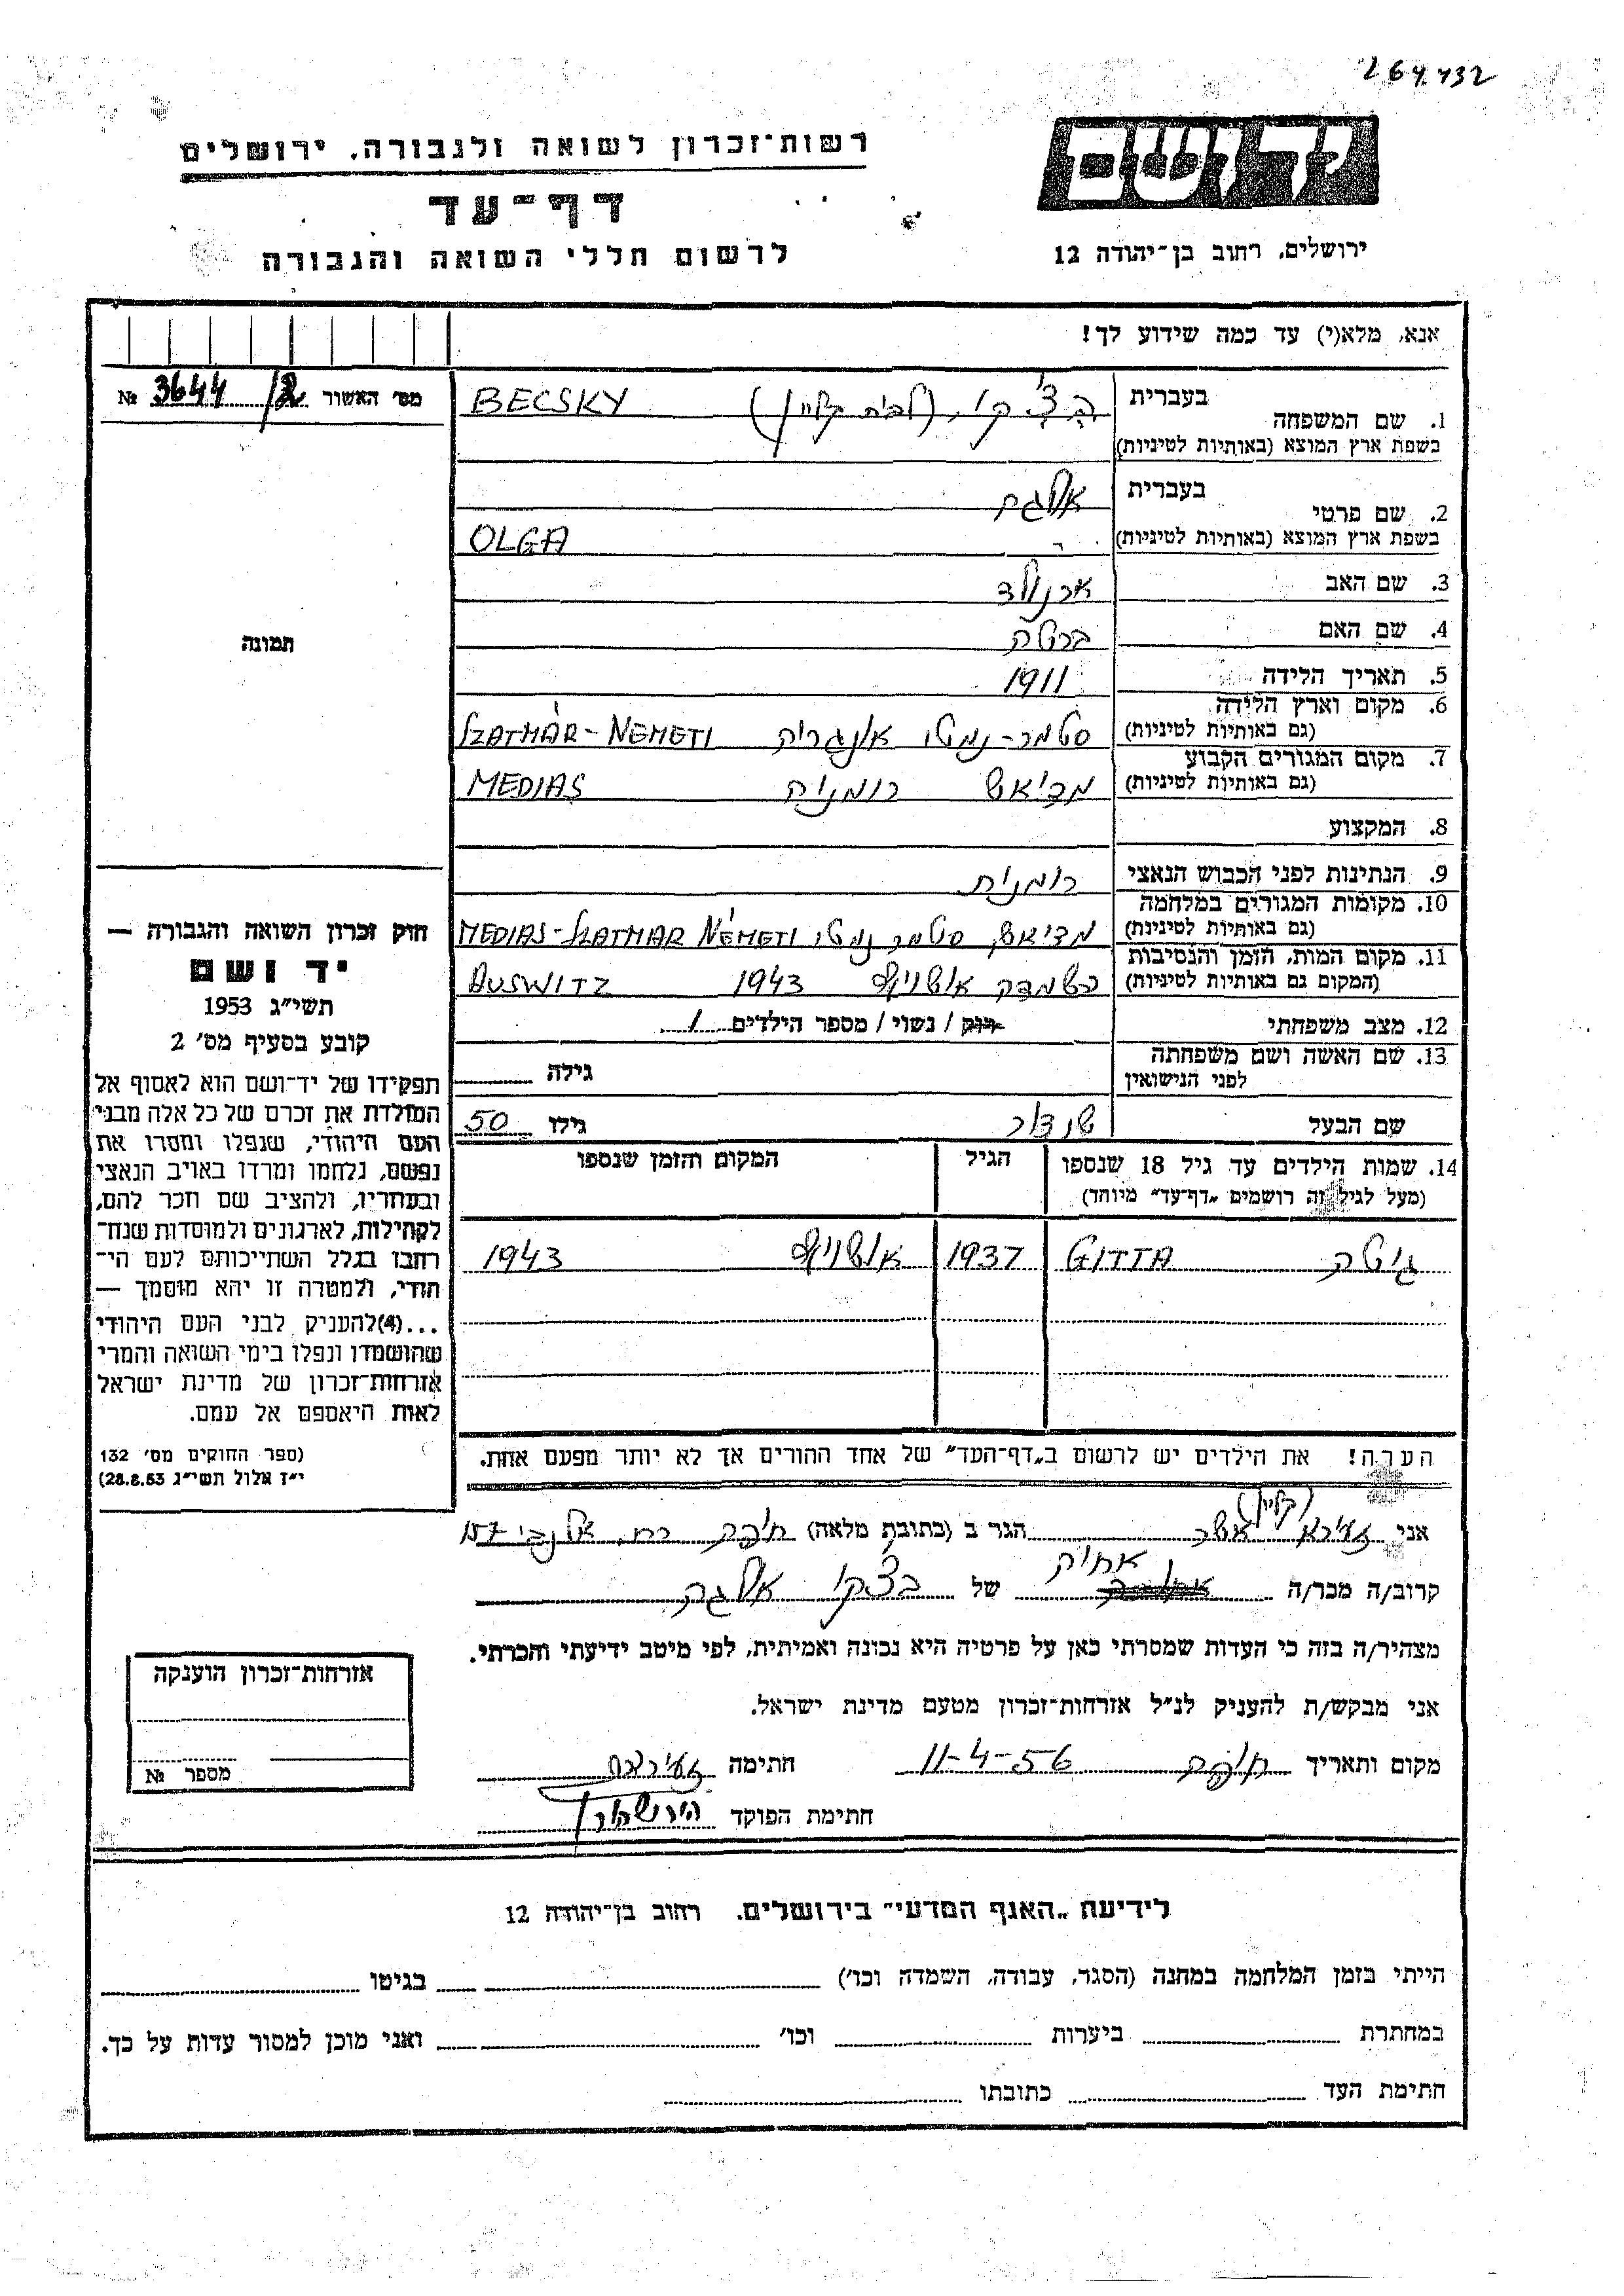 264432
רשות־זכרון לשואה ולגבורה, ירושלים
דף־עד
לרשום חללי השואה והגבורה
יד ושם
ירושלים, רחוב בן־יהודה 12
אנא, מלא(י) עד כמה שידוע לך!
מס׳ האשור 3644/2 №
תמונה
1. שם המשפחה בעברית בצ׳קי, (לבית קליין) BECSKY
בשפת ארץ המוצא (באותיות לטיניות)
2. שם פרטי בעברית אלגה
בשפת ארץ המוצא (באותיות לטיניות) OLGA
3. שם האב ארנולד
4. שם האם ברטה
5. תאריך הלידה 1911
6. מקום וארץ הלידה (גם באותיות לטיניות) סטמר-נמטי אונגריה SZATMÁR-NÉMETI
7. מקום המגורים הקבוע (גם באותיות לטיניות) מדיאש רומניה MEDIAS
8. המקצוע
9. הנתינות לפני הכבוש הנאצי רומנית
10. מקומות המגורים במלחמה (גם באותיות לטינית) מדיאש, סטמר נמטי MEDIAS-SZATMAR NÉMETI
11. מקום המות, הזמן והנסיבות (המקום גם באותיות לטיניות) השמדה אושויץ 1943 AUSWITZ
12. מצב משפחתי רוק / נשוי / מספר הילדים 1
13. שם האשה ושם משפחתה לפני הנישואין גילה
שם הבעל שנדור גילו 50
14. שמות הילדים עד גיל 18 שנספו הגיל המקום והזמן שנספו
(מעל לגיל זה רושמים „דף־עד״ מיוחד)
גיטה GITTA 1937 אושויץ 1943
הערה! את הילדים יש לרשום ב„דף־העד״ של אחד ההורים אך לא יותר מפעם אחת.
חוק זכרון השואה והגבורה —
יד ושם
תשי״ג 1953
קובע בסעיף מס׳ 2
תפקידו של יד־ושם הוא לאסוף אל
המולדת את זכרם של כל אלה מבני
העם היהודי, שנפלו ומסרו את
נפשם, נלחמו ומרדו באויב הנאצי
ובעוזריו, ולהציב שם וזכר להם,
לקהילות, לארגונים ולמוסדות שנח־
רבו בגלל השתייכותם לעם הי־
הודי, ולמטרה זו יהא מוסמך —
...(4)להעניק לבני העם היהודי
שהושמדו ונפלו בימי השואה והמרי
אזרחות־זכרון של מדינת ישראל
לאות היאספם אל עמם.
(ספר החוקים מס׳ 132
י״ז אלול תשי״ג 28.8.53)
(קליין)
אני זעירא אשר הגר ב (כתובת מלאה) חיפה רח, אלנבי 157
אחיה
קרוב/ה מכר/ה של בצ׳קי אלגה
מצהיר/ה בזה כי העדות שמסרתי כאן על פרטיה היא נכונה ואמיתית, לפי מיטב ידיעתי והכרתי.
אני מבקש/ת להעניק לנ״ל אזרחות־זכרון מטעם מדינת ישראל.
מקום ותאריך חיפה 11-4-56 חתימה
חתימת הפוקד
אזרחות־זכרון הוענקה
מספר №
לידיעת „האגף המדעי״ בירושלים. רחוב בן־יהודה 12
הייתי בזמן המלחמה במחנה (הסגר, עבודה, השמדה וכו׳) בגיטו
במחתרת ביערות וכו׳ ואני מוכן למסור עדות על כך.
חתימת העד כתובתו